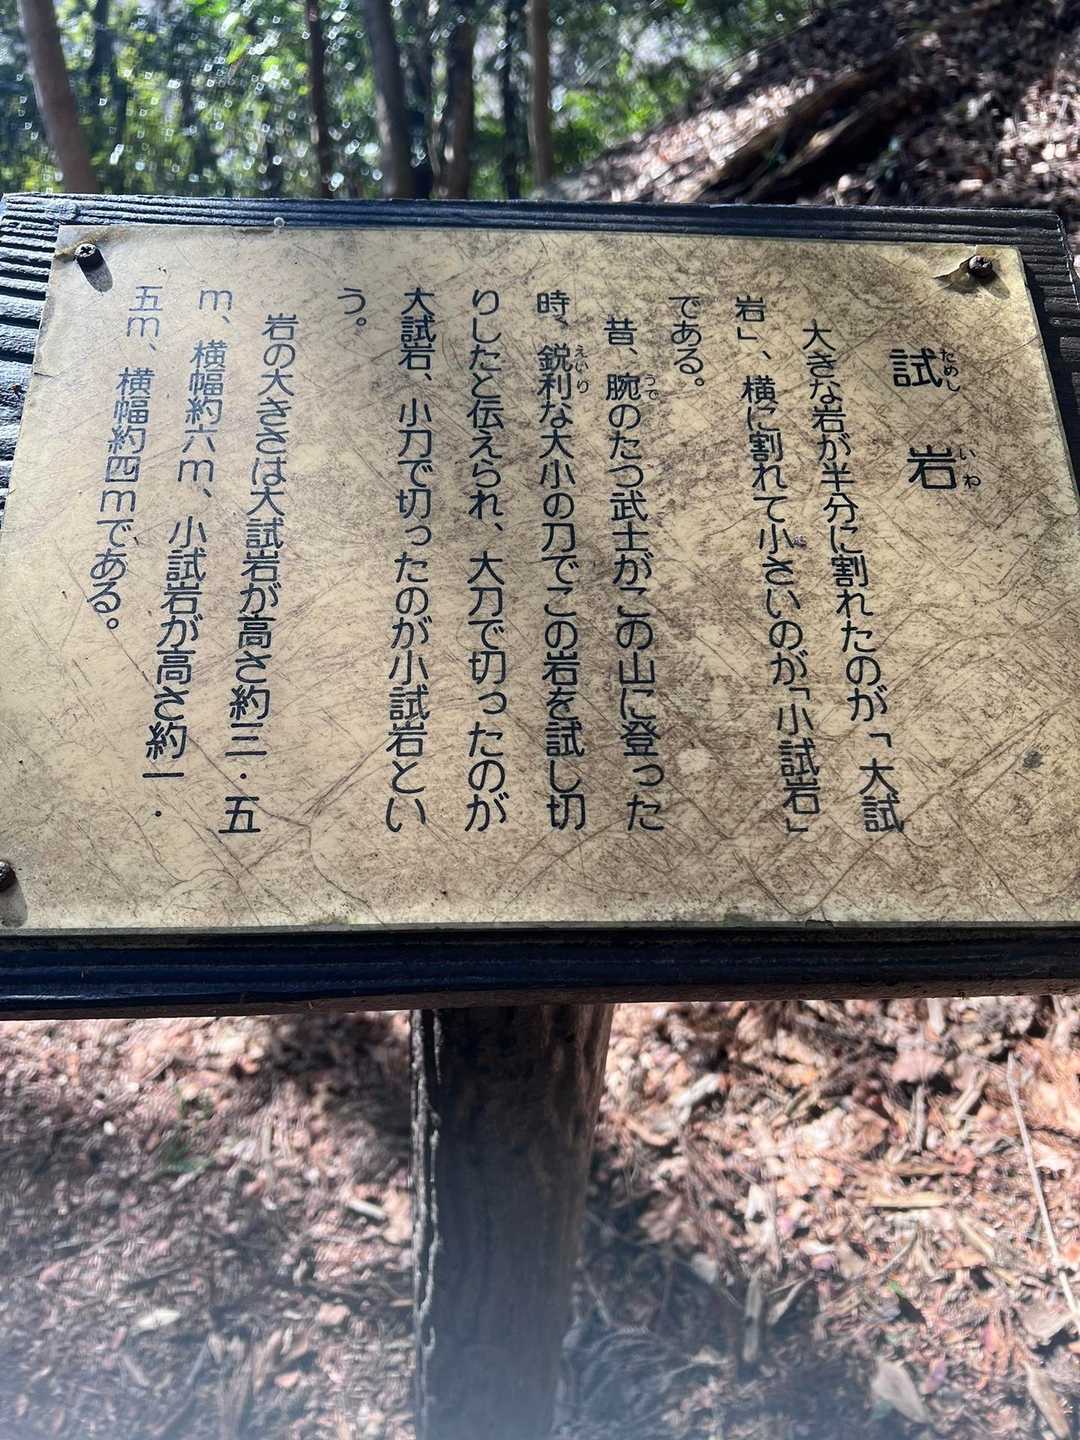 試岩
ためしいわ
大きな岩が半分に割れたのが「大試
岩」、横に割れて小さいのが「小試岩」
である。
昔、腕のたつ武士がこの山に登った
うで
時、鋭利な大小の刀でこの岩を試し切
えいり
りしたと伝えられ、大刀で切ったのが
大試岩、小刀で切ったのが小試岩とい
う。
岩の大きさは大試岩が高さ約三・五
m、横幅約六m、小試岩が高さ約一・
五m、横幅約四mである。